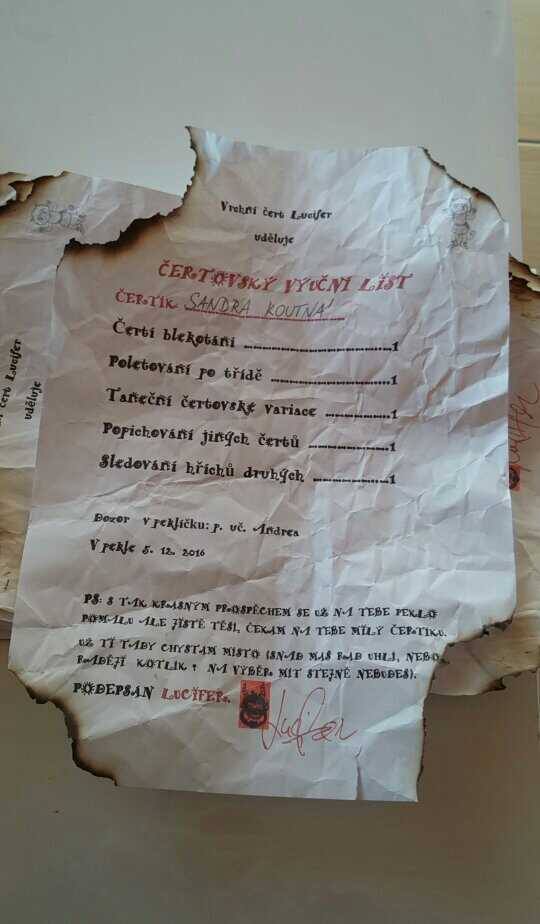 Vrchní čert Lucifer
uděluje
ČERTOVSKÝ VÝUČNÍ LIST
ČERTÍK SANDRA KOUTNÁ
Čertí blekotání ........................1
Poletování po třídě ........................1
Taneční čertovské variace ..............1
Popichování jiných čertů ................1
Sledování hříchů druhých ................1
Dozor v peklíčku: p. uč. Andrea
V pekle 5. 12. 2016
PS: S TAK KRÁSNÝM PROSPĚCHEM SE UŽ NA TEBE PEKLO
POMALU ALE JISTĚ TĚŠÍ, ČEKÁM NA TEBE MILÝ ČERTÍKU.
UŽ TI TADY CHYSTÁM MÍSTO (SNAD MÁŠ RÁD UHLÍ, NEBO
RADĚJI KOTLÍK? NA VÝBĚR MÍT STEJNĚ NEBUDEŠ).
PODEPSÁN LUCIFER.
Lucifer
čert Lucifer
uděluje